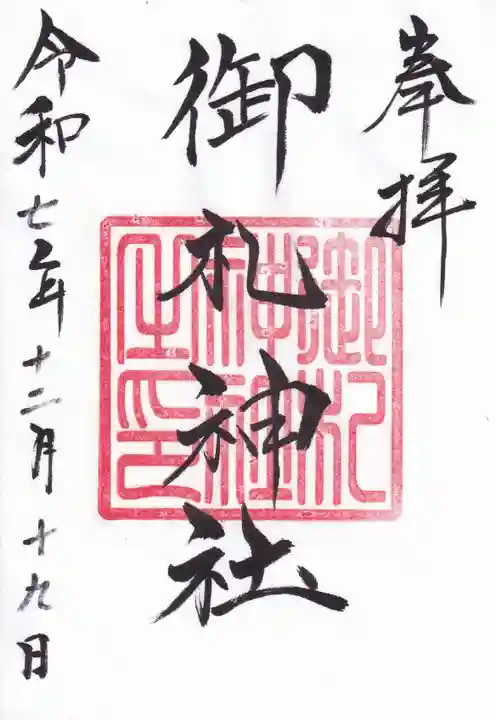 奉拝
御札神社
令和七年十二月十九日
御札神社之印